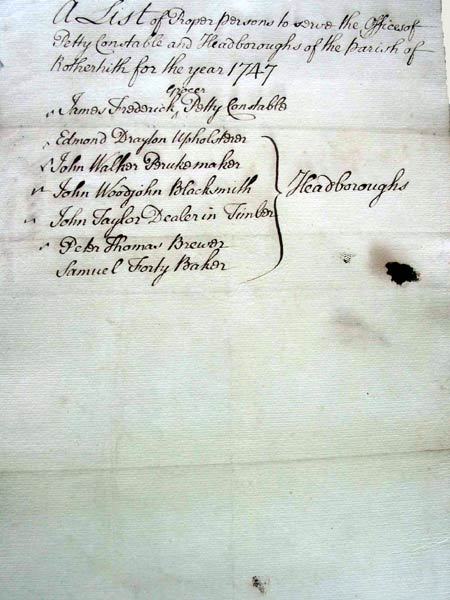 A List of Proper Persons to serve the Offices of
Petty Constable and Headboroughs of the Parish of
Rotherhith for the year 1747
Grocer
James Frederick ^ Petty Constable
Edmond Drayton Upholsterer
John Walker Perukemaker
John Woodjohn Blacksmith
John Taylor Dealer in Timber
Peter Thomas Brewer
Samuel Forty Baker
Headboroughs